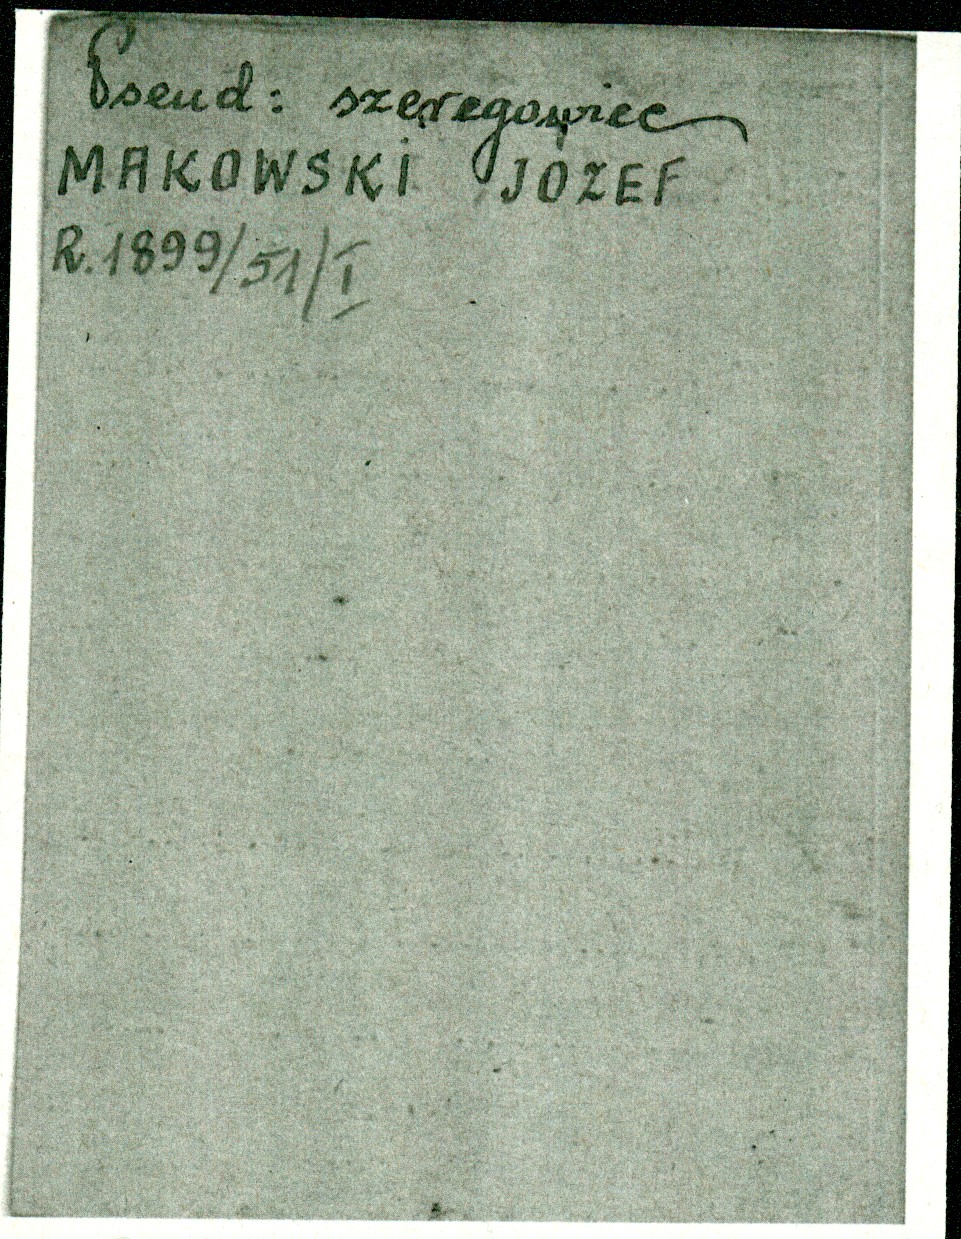 Pseud: szeregowiec
MAKOWSKI JÓZEF
R. 1899/51/I